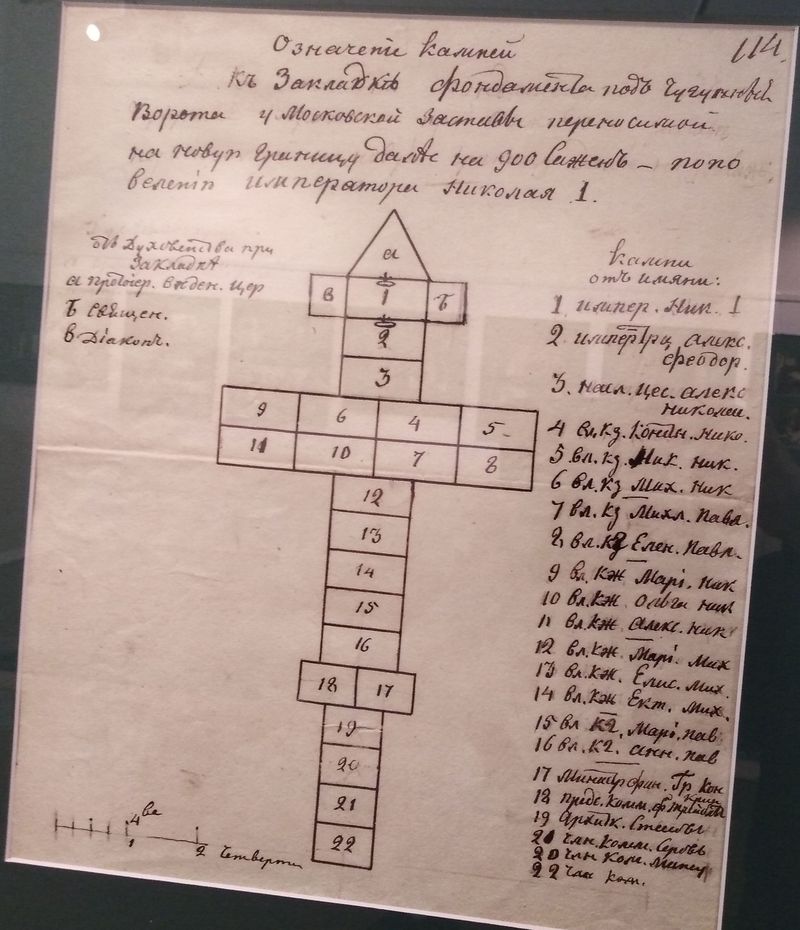 114.
Означенiе камней
къ Закладкѣ фондамента подъ Чугунныя
Ворота у Московской Заставы переносимой
на новую границу далѣе на 900 Саженъ – по по
веленiю императора Николая 1.
отъ Духовенства при
Закладкѣ
а протоiер. вхден. цер
Б Священ.
в Дiаконъ.
камни
отъ имяни:
1 импер. Ник. I
2 императрц алекс.
феодор.
3. насл. цес. алекс
николаи.
4 вл. кз. Констн. Нико.
5 вл. кз. Ник. ник.
6 вл. кз Мих. Ник
7 вл. кз Михл. Павл.
8 вл. кз Елен. Павл.
9 вл. кж Марi. Ник
10 вл. кж Ольга ник
11 вл. кж алекс. ник
12 вл. кж Марi. Мих
13 вл. кж. Елис. Мих.
14 вл. кж Ект. Мих.
15 вл кг. Марi. пав
16 вл. кг. анн. пав
17 Министр фин. Гр. Кон
крин
18 предс. комм.
19 Архитк. Стасовъ
20 члн. комм. Серовъ
20 члн ком.
22 члн ком.
а
в 1 Б
2
3
9 6 4 5
11 10 7 8
12
13
14
15
16
18 17
19
20
21
22
4ве
1 2 четверти